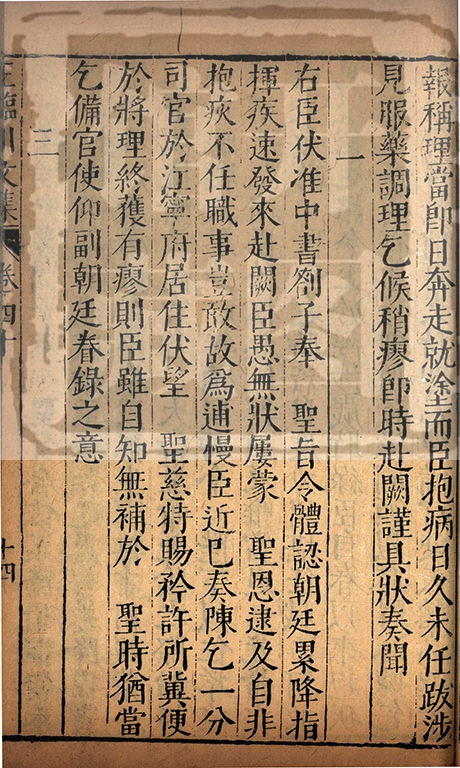 報稱理當即日奔走就塗而臣抱病日久未任跋涉
見服藥調理乞候稍瘳即時赴闕謹具狀奏聞
二
右臣伏准中書劄子奉 聖旨令體認朝廷累降指
揮疾速發來赴闕臣愚無狀屢蒙 聖恩逮及自非
抱疾不任職事豈敢故爲逋慢臣近已奏陳乞一分
司官於江寧府居住伏望 聖慈特賜矜許所冀便
於將理終獲有瘳則臣雖自知無補於 聖時猶當
乞備官使仰副朝廷眷錄之意
三
王臨川文集 卷四十 十四